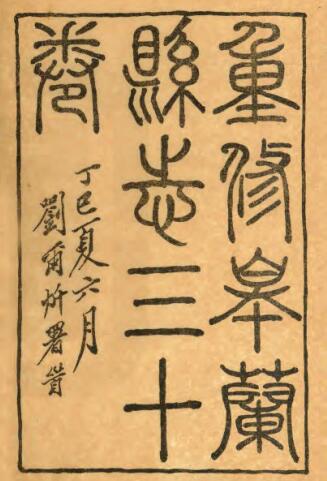 重修皋蘭
縣志三十
卷
丁巳夏六月
劉爾炘署首